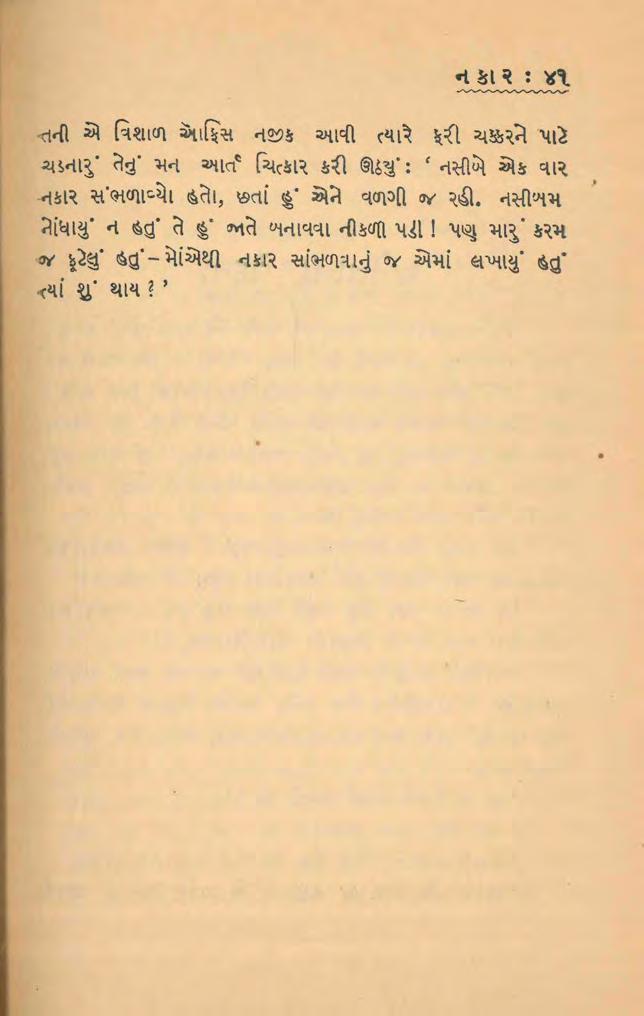 નકાર : ૪૧
તની એ વિશાળ ઑફિસ નજીક આવી ત્યારે ફરી ચક્કરને પાટે
ચડનારું તેનું મન આર્ત ચિત્કાર કરી ઊઠ્યું : ‘ નસીબે એક વાર
નકાર સંભળાવ્યો હતો, છતાં હું એને વળગી જ રહી. નસીબમ
નોંધાયું ન હતું તે હું જાતે બનાવવા નીકળી પડી ! પણ મારું કરમ
જ ફૂટેલું હતું – મોંએથી નકાર સાંભળવાનું જ એમાં લખાયું હતું
ત્યાં શું થાય ? ’